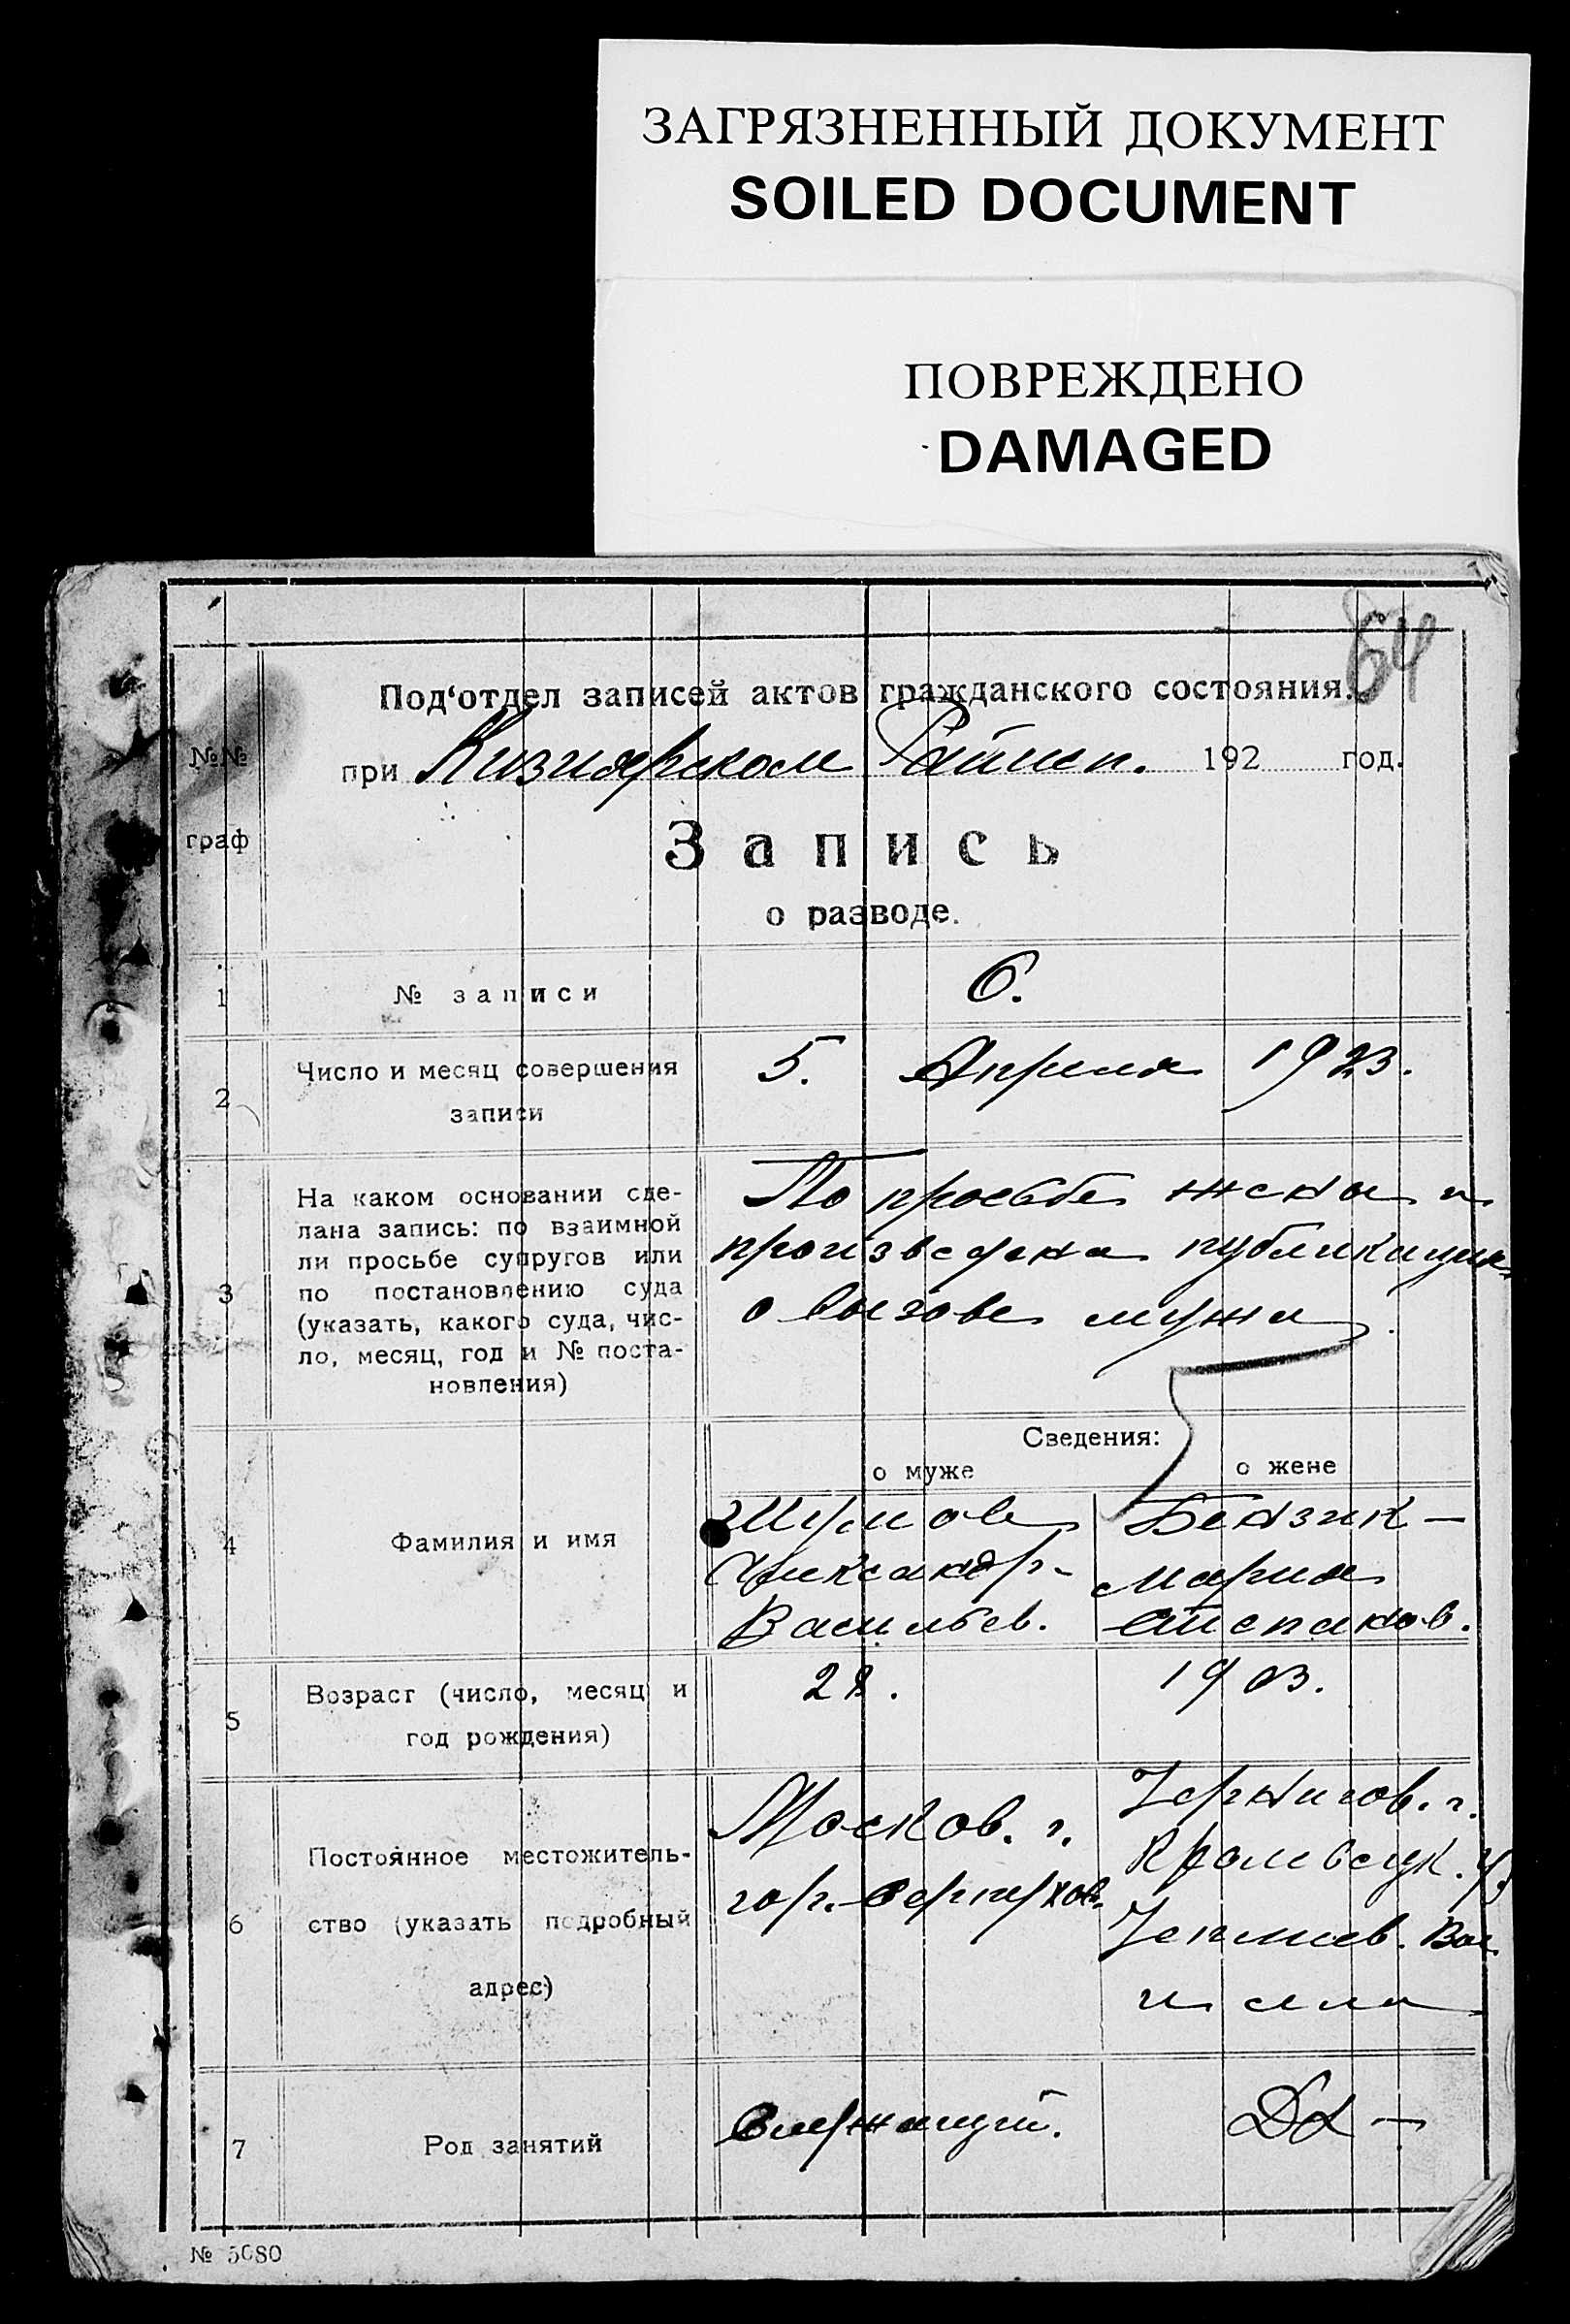 ЗАГРЯЗНЕННЫЙ ДОКУМЕНТ
SOILED DOCUMENT
ПОВРЕЖДЕНО
DAMAGED
64
Под‘отдел записей актов гражданского состояния.
№№
граф
при Кизиярском Райисп. 192 год.
Запись
о разводе.
1
№ записи
6.
2
Число и месяц совершения
записи
5. Апреля 1923.
3
На каком основании сде-
лана запись: по взаимной
ли просьбе супругов или
по постановлению суда
(указать, какого суда, чис-
ло, месяц, год и № поста-
новления)
По просьбе жены и
произведена публикация
о вызове мужа
Сведения:
о муже
о жене
4
Фамилия и имя
Шумов
Александр-
Васильев.
Бензик –
Мария
Степанов.
5
Возраст (число, месяц и
год рождения)
28.
1903.
6
Постоянное местожитель-
ство (указать подробный
адрес)
Москов. г.
гор. Серпухов.
Чернигов. г.
Кролевецк. у.
Вол.
и села
7
Род занятий
Служащий.
Дх –
№ 5080